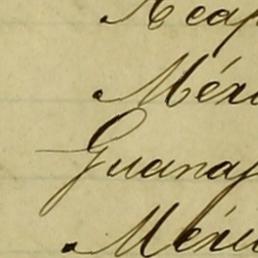 Acap
Méxi
Guanaj
Méxi